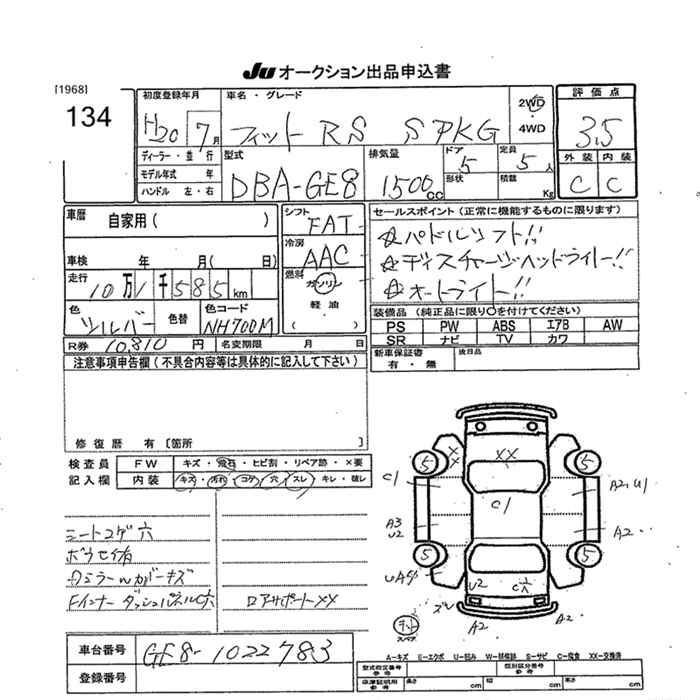 JU オークション出品申込書
[1968]
134
初度登録年月
H20 7月
ディーラー・並行
モデル年式 年
ハンドル 左・右
車名・グレード
フィット RS S PKG
2WD
・
4WD
型式
DBA-GE8
排気量
1500cc
ドア
5
形状
定員
5人
積載
Kg
評価点
3.5
外装 内装
C C
車歴
自家用( )
車検 年 月( 日)
走行
10万1千585km
色
シルバー
色替
色コード
NH700M
R券 10,810 円 名変期限 月 日
シフト
FAT
冷房
AAC
燃料
ガソリン
・
軽油
( )
セールスポイント(正常に機能するものに限ります)
☆パドルシフト!!
☆ディスチャージヘッドライト!!
☆オートライト!!
装備品(純正品に限り○を付けてください)
PS PW ABS エアB AW
SR ナビ TV カワ
新車保証書
有・無
後日品
注意事項申告欄(不具合内容等は具体的に記入して下さい)
修復歴 有[箇所 ]
検査員
記入欄
FW キズ・飛石・ヒビ割・リペア跡・×要
内装 キズ・汚れ・コゲ・穴・スレ・キレ・破レ
シートコゲ穴
ボウセイ有
Rミラーカバーキズ
FインナーダッシュパネルC穴
ロアサポートXX
XX
XX
5
5
5
5
C1
C1
A2,U1
A3
U2
A2
UA
U2
C穴
ズレ
A2
A2
スペア
車台番号
GE8-1022783
登録番号
A-キズ E-エクボ U-凹み W-補修跡 S-サビ C-腐食 XX-交換済
型式指定番号
参考
類別区分番号
参考
保険証明用
参考
長さ cm 幅 cm 高さ cm